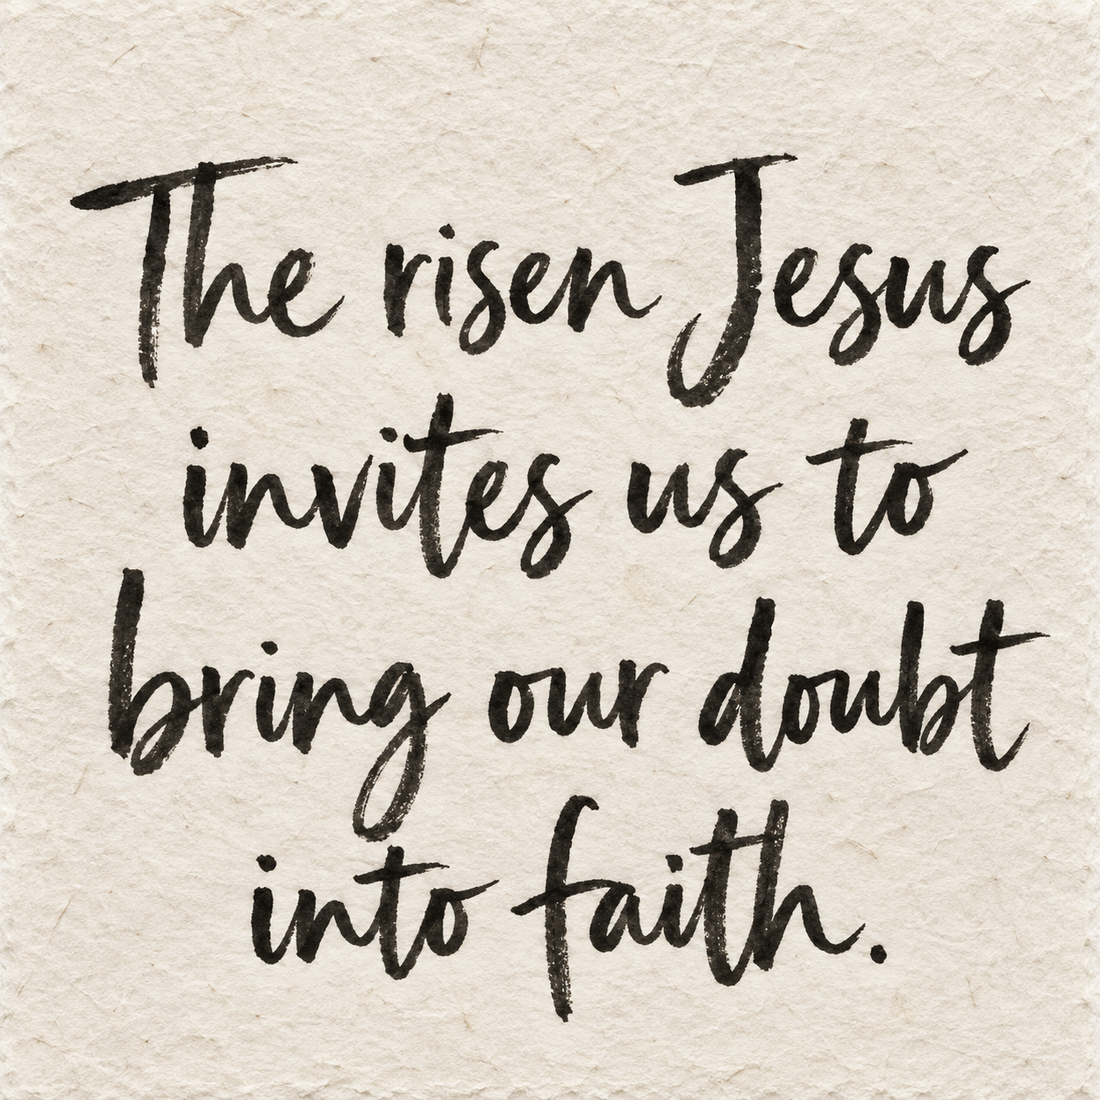 The risen Jesus
invites us to
bring our doubt
into faith.